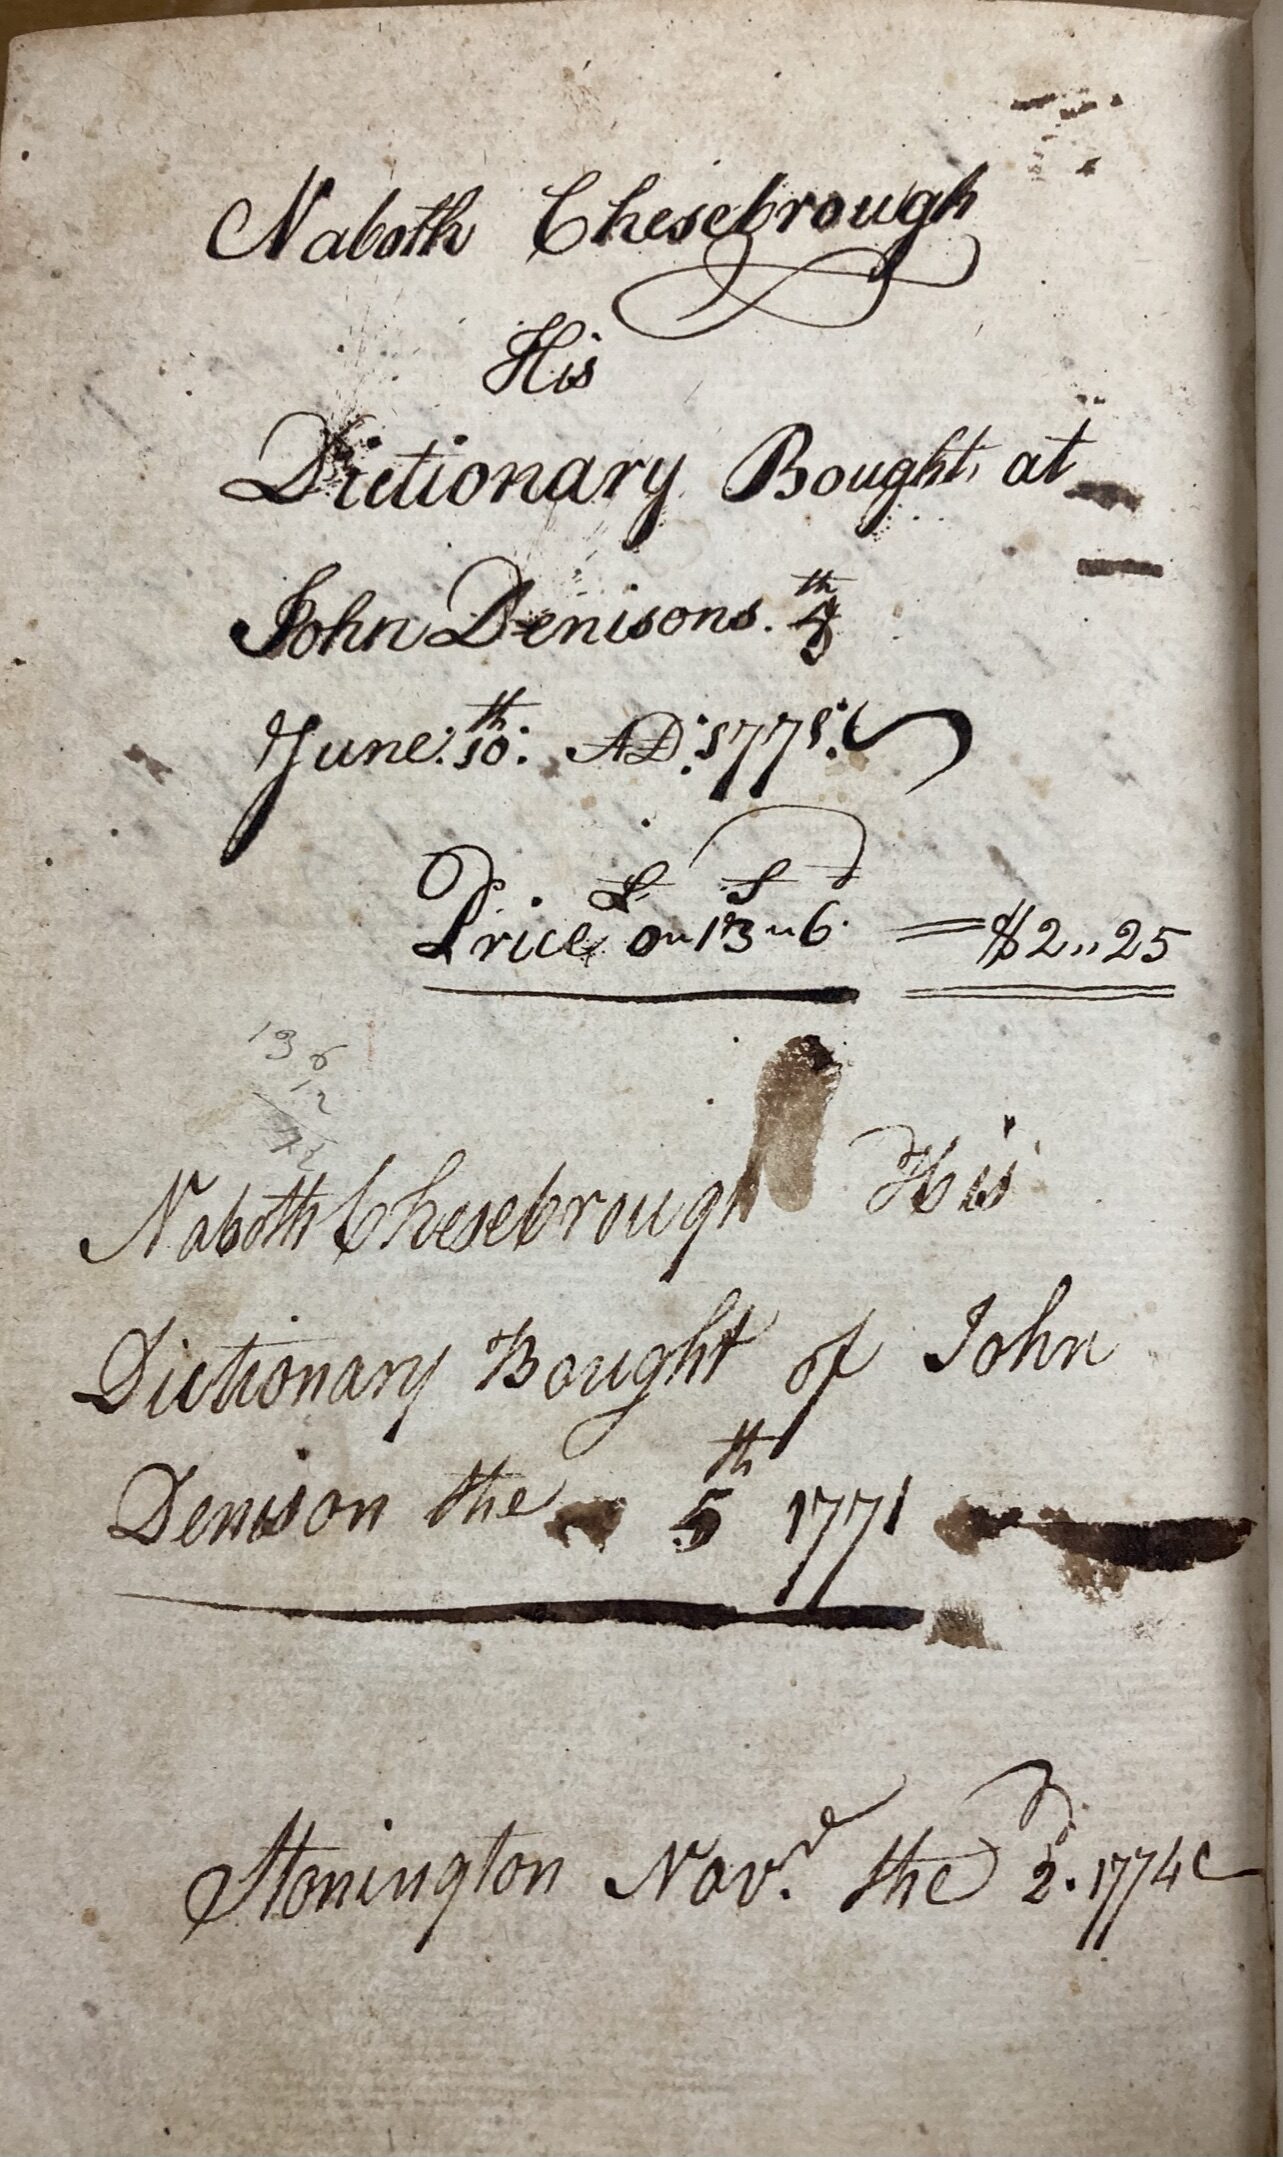 Naboth Chesebrough
His
Dictionary Bought at
John Denisons. 5th
June. 10th. AD. 1771.
£ S d
Price 0 " 13 " 6 = $2,,25
13 6
12
Naboth Chesebrough His
Dictionary Bought of John
Denison the 5th 1771
Stonington Nov.r the 2d. 1774